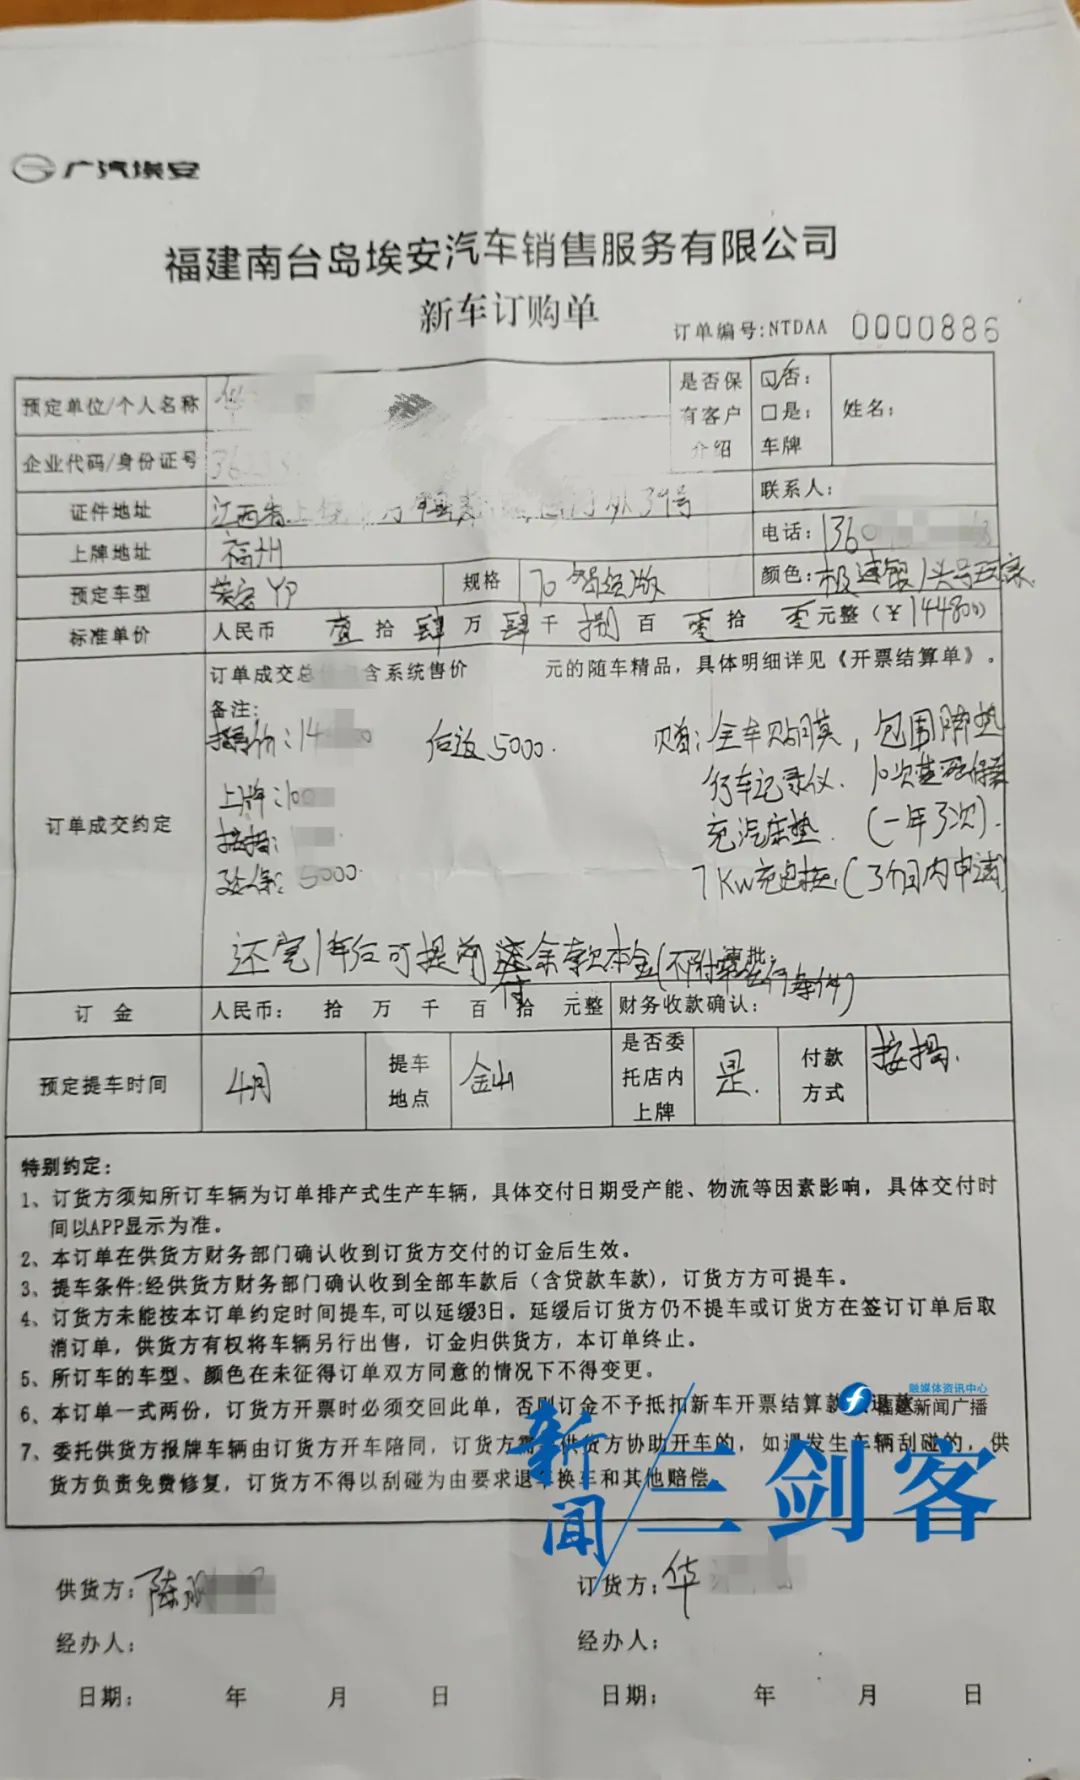 广汽埃安
福建南台岛埃安汽车销售服务有限公司
新车订购单
订单编号:NTDAA 0000886
预定单位/个人名称 华
是否保有客户介绍 否: 是: 车牌 姓名:
企业代码/身份证号
证件地址 江西省上 39号
联系人:
上牌地址 福州
电话: 136
预定车型 埃安YP 规格 70 智领版 颜色: 极速银/头号玩家
标准单价 人民币 壹拾肆万肆千捌百零拾零元整(¥144800)
订单成交约定
订单成交总 含系统售价 元的随车精品,具体明细详见《开票结算单》。
备注:
指导价:14 后返5000. 赠:全车贴膜,包围脚垫
上牌: 行车记录仪. 10次基础保养
按揭: 充汽床垫. (一年3次).
延保: 5000. 7KW充电桩(3个月内申请)
还完1年后可提前 付余款本金(不附
订金 人民币: 拾 万 千 百 拾 元整 财务收款确认:
预定提车时间 4月 提车地点 金山 是否委托店内上牌 是. 付款方式 按揭.
特别约定:
1、订货方须知所订车辆为订单排产式生产车辆,具体交付日期受产能、物流等因素影响,具体交付时
间以APP显示为准。
2、本订单在供货方财务部门确认收到订货方交付的订金后生效。
3、提车条件:经供货方财务部门确认收到全部车款后(含贷款车款),订货方方可提车。
4、订货方未能按本订单约定时间提车,可以延缓3日。延缓后订货方仍不提车或订货方在签订订单后取
消订单,供货方有权将车辆另行出售,订金归供货方,本订单终止。
5、所订车的车型、颜色在未征得订单双方同意的情况下不得变更。
6、本订单一式两份,订货方开票时必须交回此单,否则订金不予抵扣新车开票结算款 退款
7、委托供货方报牌车辆由订货方开车陪同,订货方需 供货方协助开车的,如遇发生车辆刮碰的,供
货方负责免费修复,订货方不得以刮碰为由要求退车换车和其他赔偿
融媒体资讯中心
福建新闻广播
新闻/三剑客
供货方: 陈 订货方: 华
经办人: 经办人:
日期: 年 月 日 日期: 年 月 日